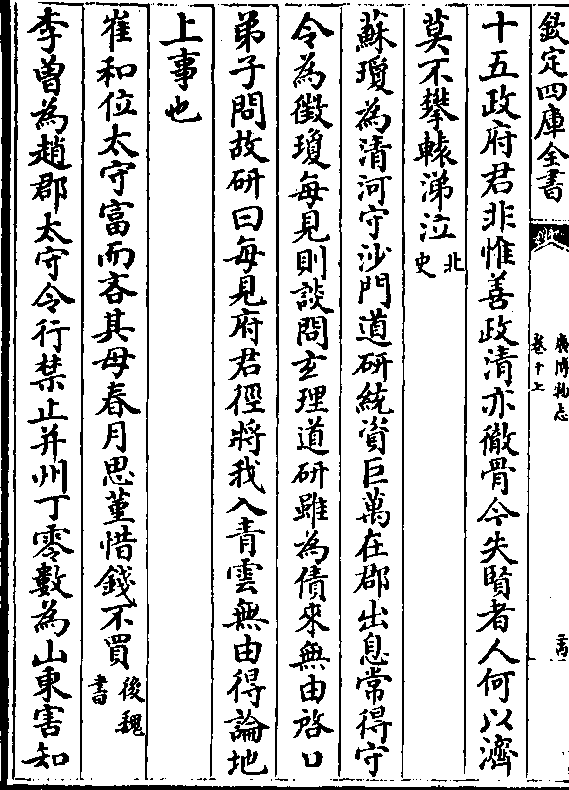 欽定四庫全書
廣博物志
卷十七
十五政府君非惟善政清亦徹骨今失賢者人何以濟
莫不攀轅涕泣北史
蘇瓊為清河守沙門道研統資巨萬在郡出息常得守
令為徵瓊每見則談問玄理道研雖為債來無由啓口
弟子問故研曰每見府君徑將我入青雲無由得論地
上事也
崔和位太守富而吝其母春月思堇惜錢不買後魏書
李曾為趙郡太守令行禁止并州丁零數為山東害知